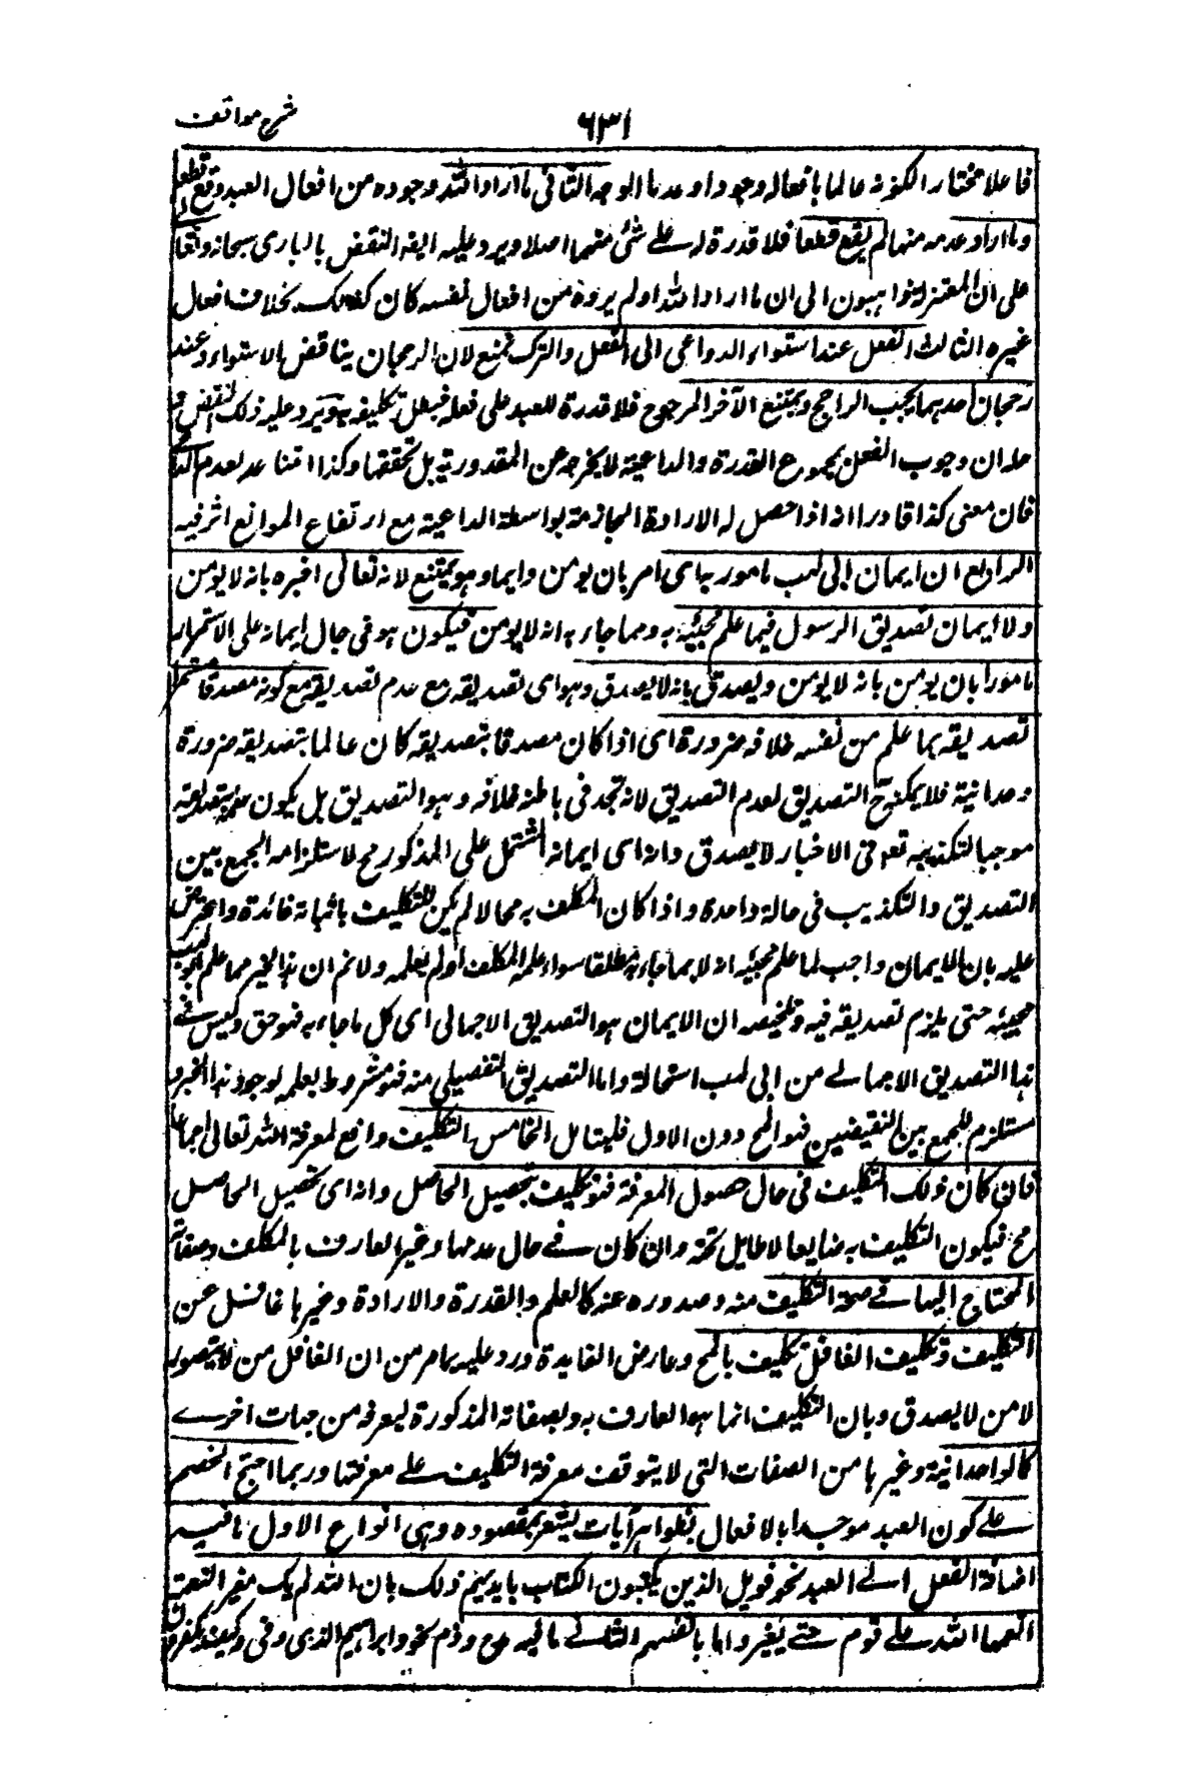 شرح مواقف
۶۳۱
فاعلا مختارا لكونه عالما بافعاله وجودا وعدما الوجه الثانى ما اراد الله وجوده من افعال العبد وقع قطعا
وما اراد عدمه منها لم يقع قطعا فلا قدرة له على شئ منهما اصلا ويرد عليه ايضا النقض بالبارى سبحانه وتعا
على ان المعتزلة ذاهبون الى ان ما اراد الله او لم يرده من افعال نفسه كان كذلك بخلاف افعال
غيره الثالث الفعل عند استواء الدواعى الى الفعل والترك ممتنع لان الرجحان يناقض الاستواء وعند
رجحان احدهما يجب الراجح ويمتنع الآخر المرجوح فلا قدرة للعبد على فعله فبطل تكليفه به ويرد عليه ذلك النقض و
حله ان وجوب الفعل بمجموع القدرة والداعية لا يخرجه عن المقدورية بل تحققها وكذا امتناعه لعدم
فان معنى كذا قادرا انه اذا حصل له الارادة الجازمة بواسطة الداعية مع ارتفاع الموانع اثر فيه
الرابع ان ايمان ابى لهب مامور به اى امر بان يومن دايما وهو ممتنع لانه تعالى اخبره بانه لا يومن
ولا ايمان تصديق الرسول فيما علم مجيئه به ومما جاء به انه لا يومن فيكون هو فى حال ايمانه على الاستمرار
مامورا بان يومن بانه لا يومن ويصدق بانه لا يصدق وهو اى تصديقه مع عدم تصديقه مع كونه مصدقا مستمرا
تصديقه بما علم من نفسه خلافه ضرورة اى اذا كان مصدقا بتصديقه كان عالما بتصديقه ضرورة
وجدانية فلا يمكنه ح التصديق لعدم التصديق لانه تجد فى باطنه خلافه وهو التصديق بل يكون
موجبا لتكذيبه تعو فى الاخبار لا يصدق وانه اى ايمانه المشتمل على المذكور مح لاستلزامه الجمع بين
التصديق والتكذيب فى حالة واحدة واذا كان المكلف به محالا لم يكن للتكليف باثباته فائدة واعترض
عليه بان الايمان واجب لما علم مجيئه به لا بما جاء به مطلقا سواء علمه المكلف او لم يعلمه ولا نم ان هذا الخبر مما علم ابو لهب
مجيئه حتى يلزم تصديقه فيه وتلخيصه ان الايمان هو التصديق الاجمالى اى كل ما جاء به فهو حق وليس فى
هذا التصديق الاجمالے من ابى لهب استحالة واما التصديق التفصيلى منه فمشروط بعلمه لوجود هذا الخبر و
مستلزم للجمع بين النقيضين فهو المح دون الاول فليتامل الخامس التكليف واقع لمعرفة الله تعالى اجماعا
فان كان ذلك التكليف فى حال حصول المعرفة فهو تكليف بتحصيل الحاصل وانه اى تحصيل الحاصل
مح فيكون التكليف به ضايعا لا طايل تحته وان كان فى حال عدمها وغير العارف بالمكلف وصفاته
المحتاج اليها فے صحة التكليف منه وصدوره عنه كالعلم والقدرة والارادة وغيرها غافل عن
التكليف وتكليف الغافل تكليف بالمح وعارض الفايدة ورد عليه بما مر من ان الغافل من لا يتصور
لا من لا يصدق وبان التكليف انما هو العارف به وبصفاته المذكورة ليعرفه من جهات اخرے
كالواحدانية وغيرها من الصفات التى لا يتوقف معرفة التكليف علے معرفتها وربما احتج الخصم
علے كون العبد موجدا بالافعال بظواهر آيات يشعر بمقصوده وهى انواع الاول ما فيه
اضافة الفعل الے العبد نحو فويل الذين يكتبون الكتاب بايديهم ذلك بان الله لم يك مغير النعمة
انعمها الله علے قوم حتے يغيروا ما بانفسهم الثانے ما فيه مدح وذم نحو وابراهيم الذى وفى وكيف تكفرون